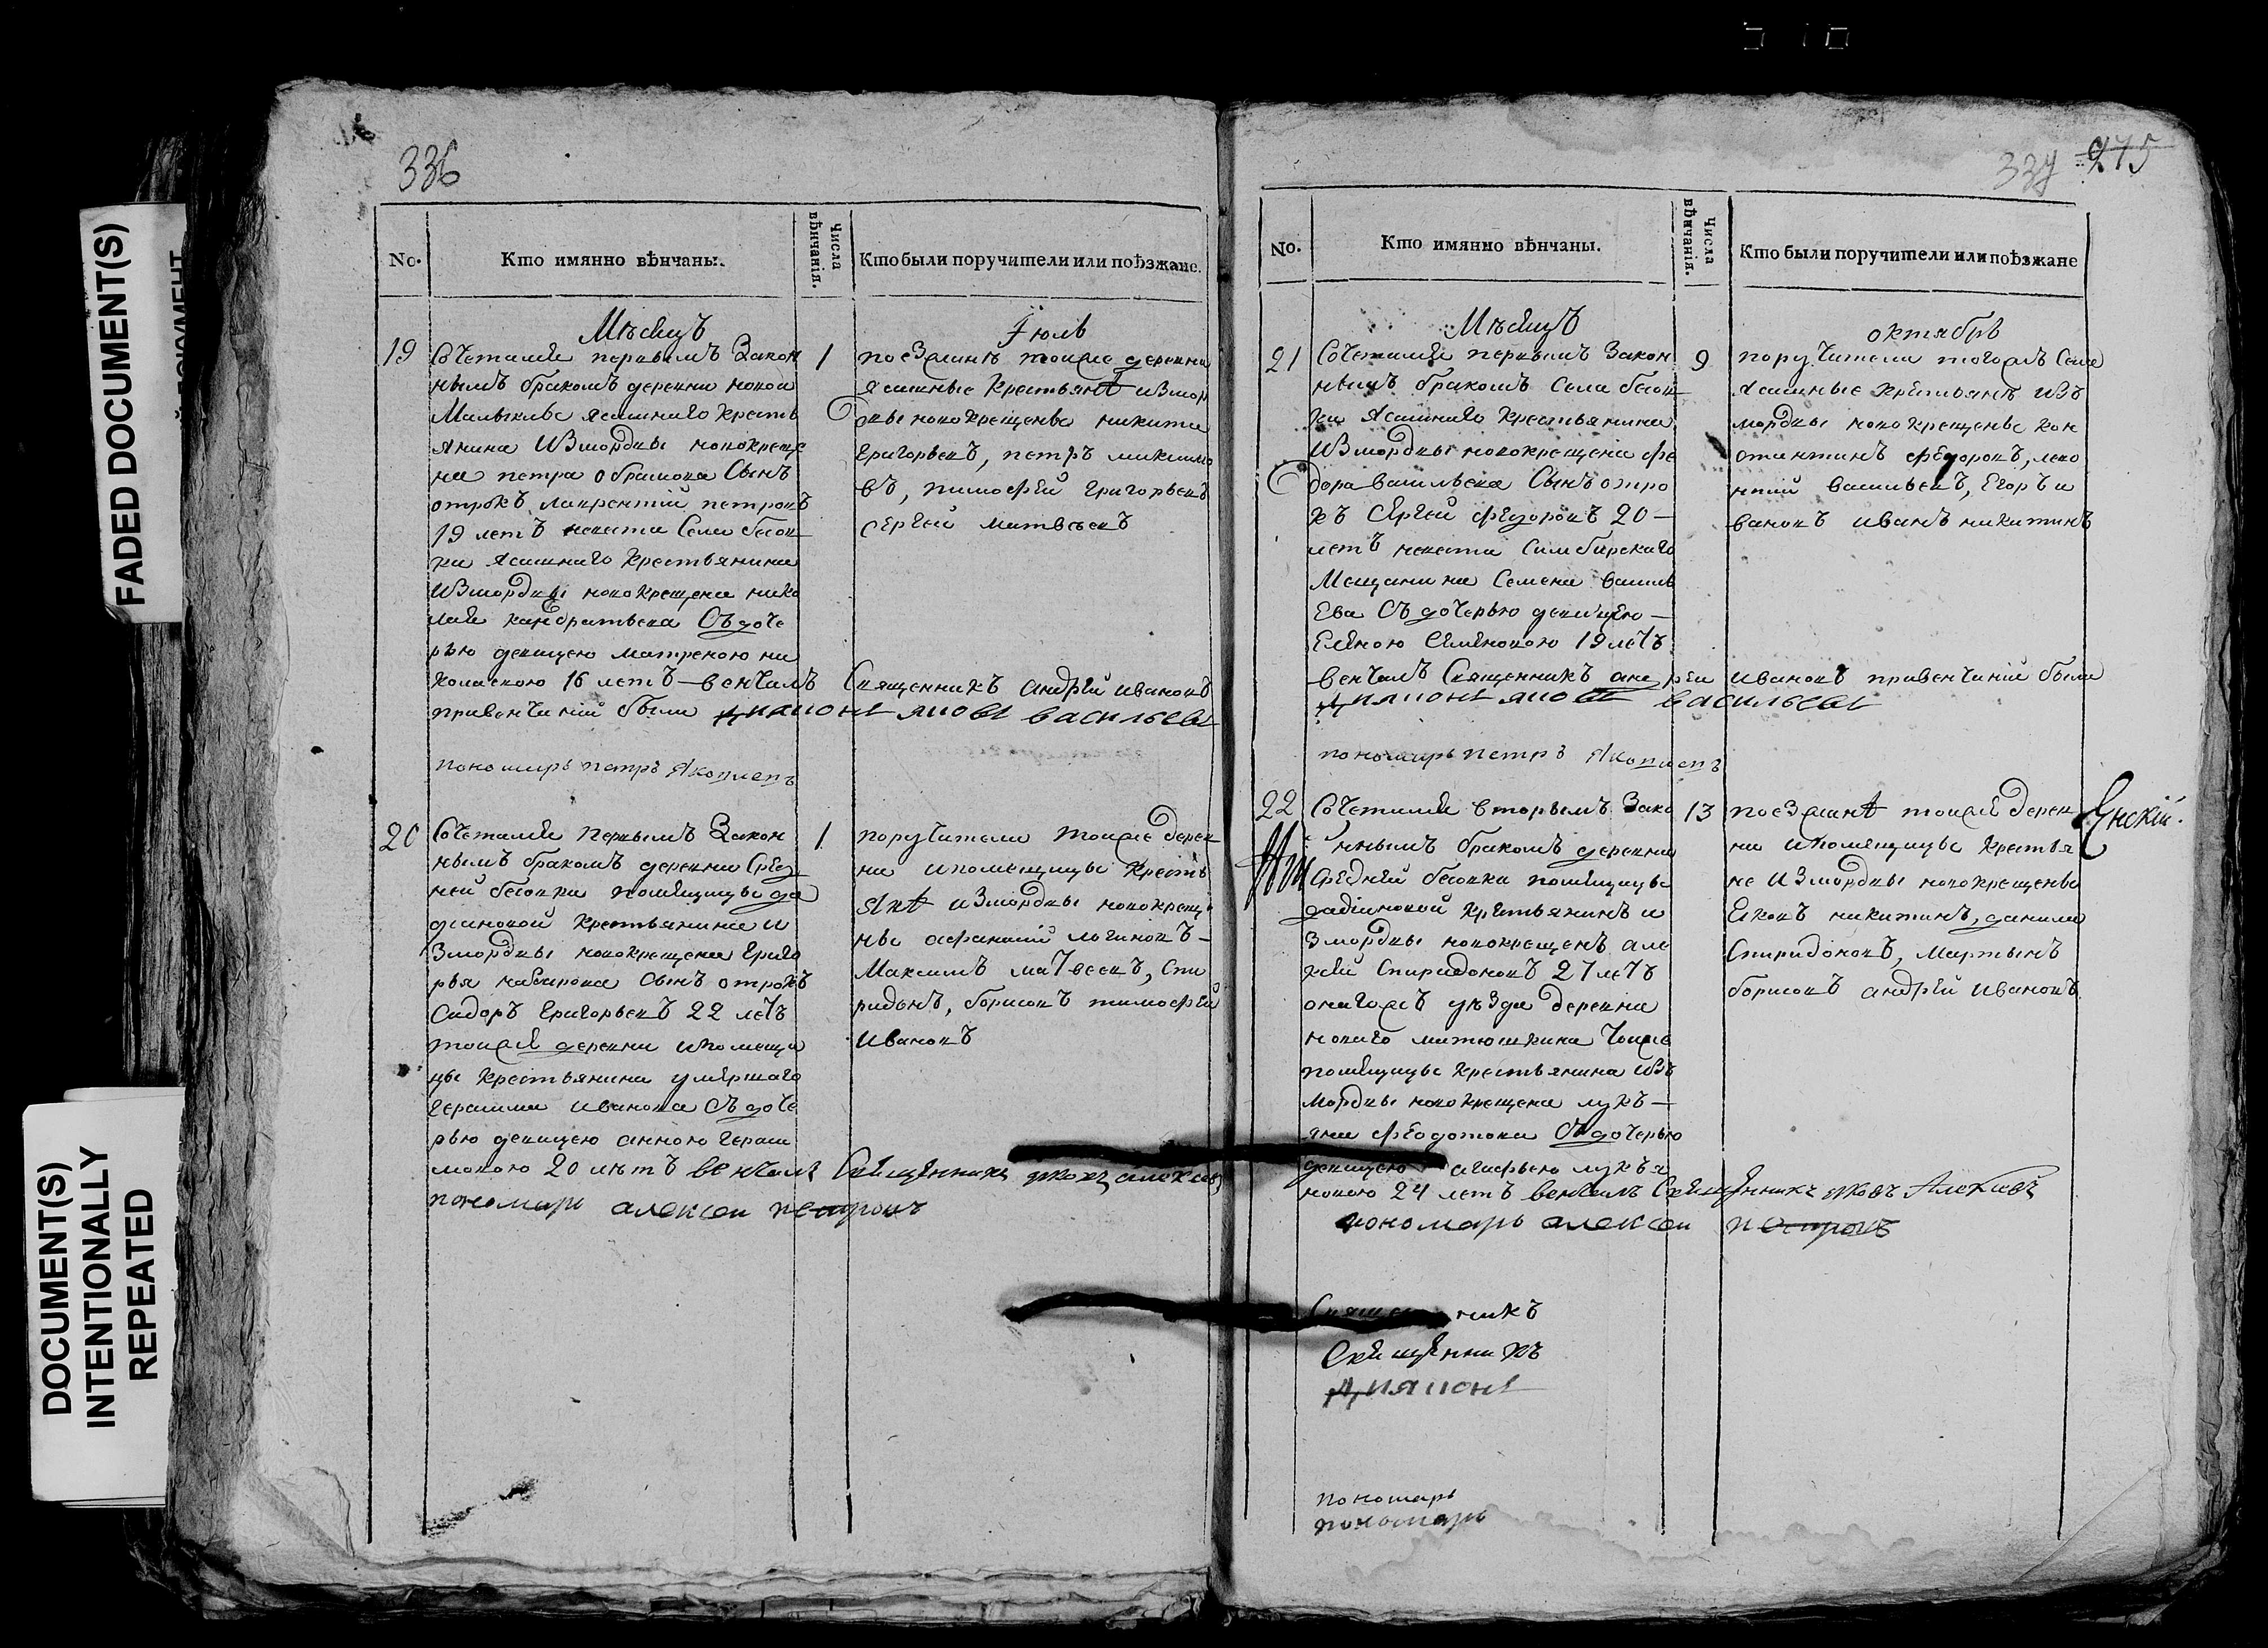 FADED DOCUMENT(S)
DOCUMENT(S)
INTENTIONALLY
REPEATED
336
No.
Кто имянно вѣнчаны.
Числа вѣнчанія.
Кто были поручители или поѣзжане.
Мѣсяцъ
Іюль
19
Сочеталися первымъ Закон
нымъ бракомъ деревни новой
Малыклы ясашнаго кресть
янина измордвы новокреще
на петра обрамова Сынъ
отрокъ лаврентій петровъ
19 летъ невеста Села бесов
ки Ясашнаго крестьянина
измордвы новокрещена нико
лая кандратьева Съ доче
рью девицею матреною ни
колаевою 16 летъ — венчалъ Священникъ андрей ивановъ
привенчаній были диаконъ яковъ васильевъ
пономарь петръ Яковлевъ
1
поезжанѣ тойже деревни
Ясашные крестьянѣ измор
двы новокрещены никита
григорьевъ, петръ максимо
въ, тимофей григорьевъ
сергей матвеевъ
20
Сочеталися Первымъ Закон
нымъ бракомъ деревни сред
ней бесовки помещицы
крестьянина и
змордвы новокрещена григо
рья Сынъ отрокъ
Сидоръ григорьевъ 22 летъ
тойже деревни ипомещи
цы крестьянина умершаго
герасима иванова Съ доче
рью девицею анною гераси
мовою 20 летъ венчалъ Священникъ алексѣевъ
пономарь алексеи петровъ
1
поручители тойже дерев
ни ипомещицы кресть
янѣ измордвы новокреще
ны афанасій логиновъ —
Максимъ матвеевъ, спи
ридонъ, борисовъ тимофей
ивановъ
337 275
No.
Кто имянно вѣнчаны.
Числа вѣнчанія.
Кто были поручители или поѣзжане
Мѣсяцъ
октябрь
21
Сочеталися первымъ Закон
нымъ бракомъ Села бесов
ки Ясашнаго крестьянина
Измордвы новокрещена фе
дора васильева Сынъ отро
къ Сергей федоровъ 20 —
летъ невеста Симбирскаго
Мещанина Семена василь
ева Съ дочерью девицею —
Еленою Семеновою 19 летъ
венчалъ Священникъ андрей ивановъ привенчаній были
диаконъ яковъ васильевъ
пономарь петръ Яковлевъ
9
поручители тогожъ Села
Ясашные крестьянѣ изъ
мордвы новокрещены кон
стантинъ федоровъ, лево
нтій васильевъ, Егоръ и
вановъ иванъ никитинъ
22
Сочеталися вторымъ Зако
ннымъ бракомъ деревни
средней бесовки помещицы
крестьянинъ и
змордвы новокрещенъ але
ксей спиридоновъ 27 летъ
онагожъ уезда деревни
новаго матюшкина тояже
помещицы крестьянина изъ
мордвы новокрещена лукъ —
яна федотова Съ дочерью
девицею агафьею лукъя
новою 24 летъ венчалъ Священникъ Алексѣевъ
пономарь алексеи петровъ
13
поезжанѣ тойже дерев
ни ипомещицы крестья
не измордвы новокрещены
никитинъ, данила
Спиридоновъ, Мартынъ
борисовъ андрей ивановъ
Священникъ
Священникъ
диаконъ
пономарь
пономарь